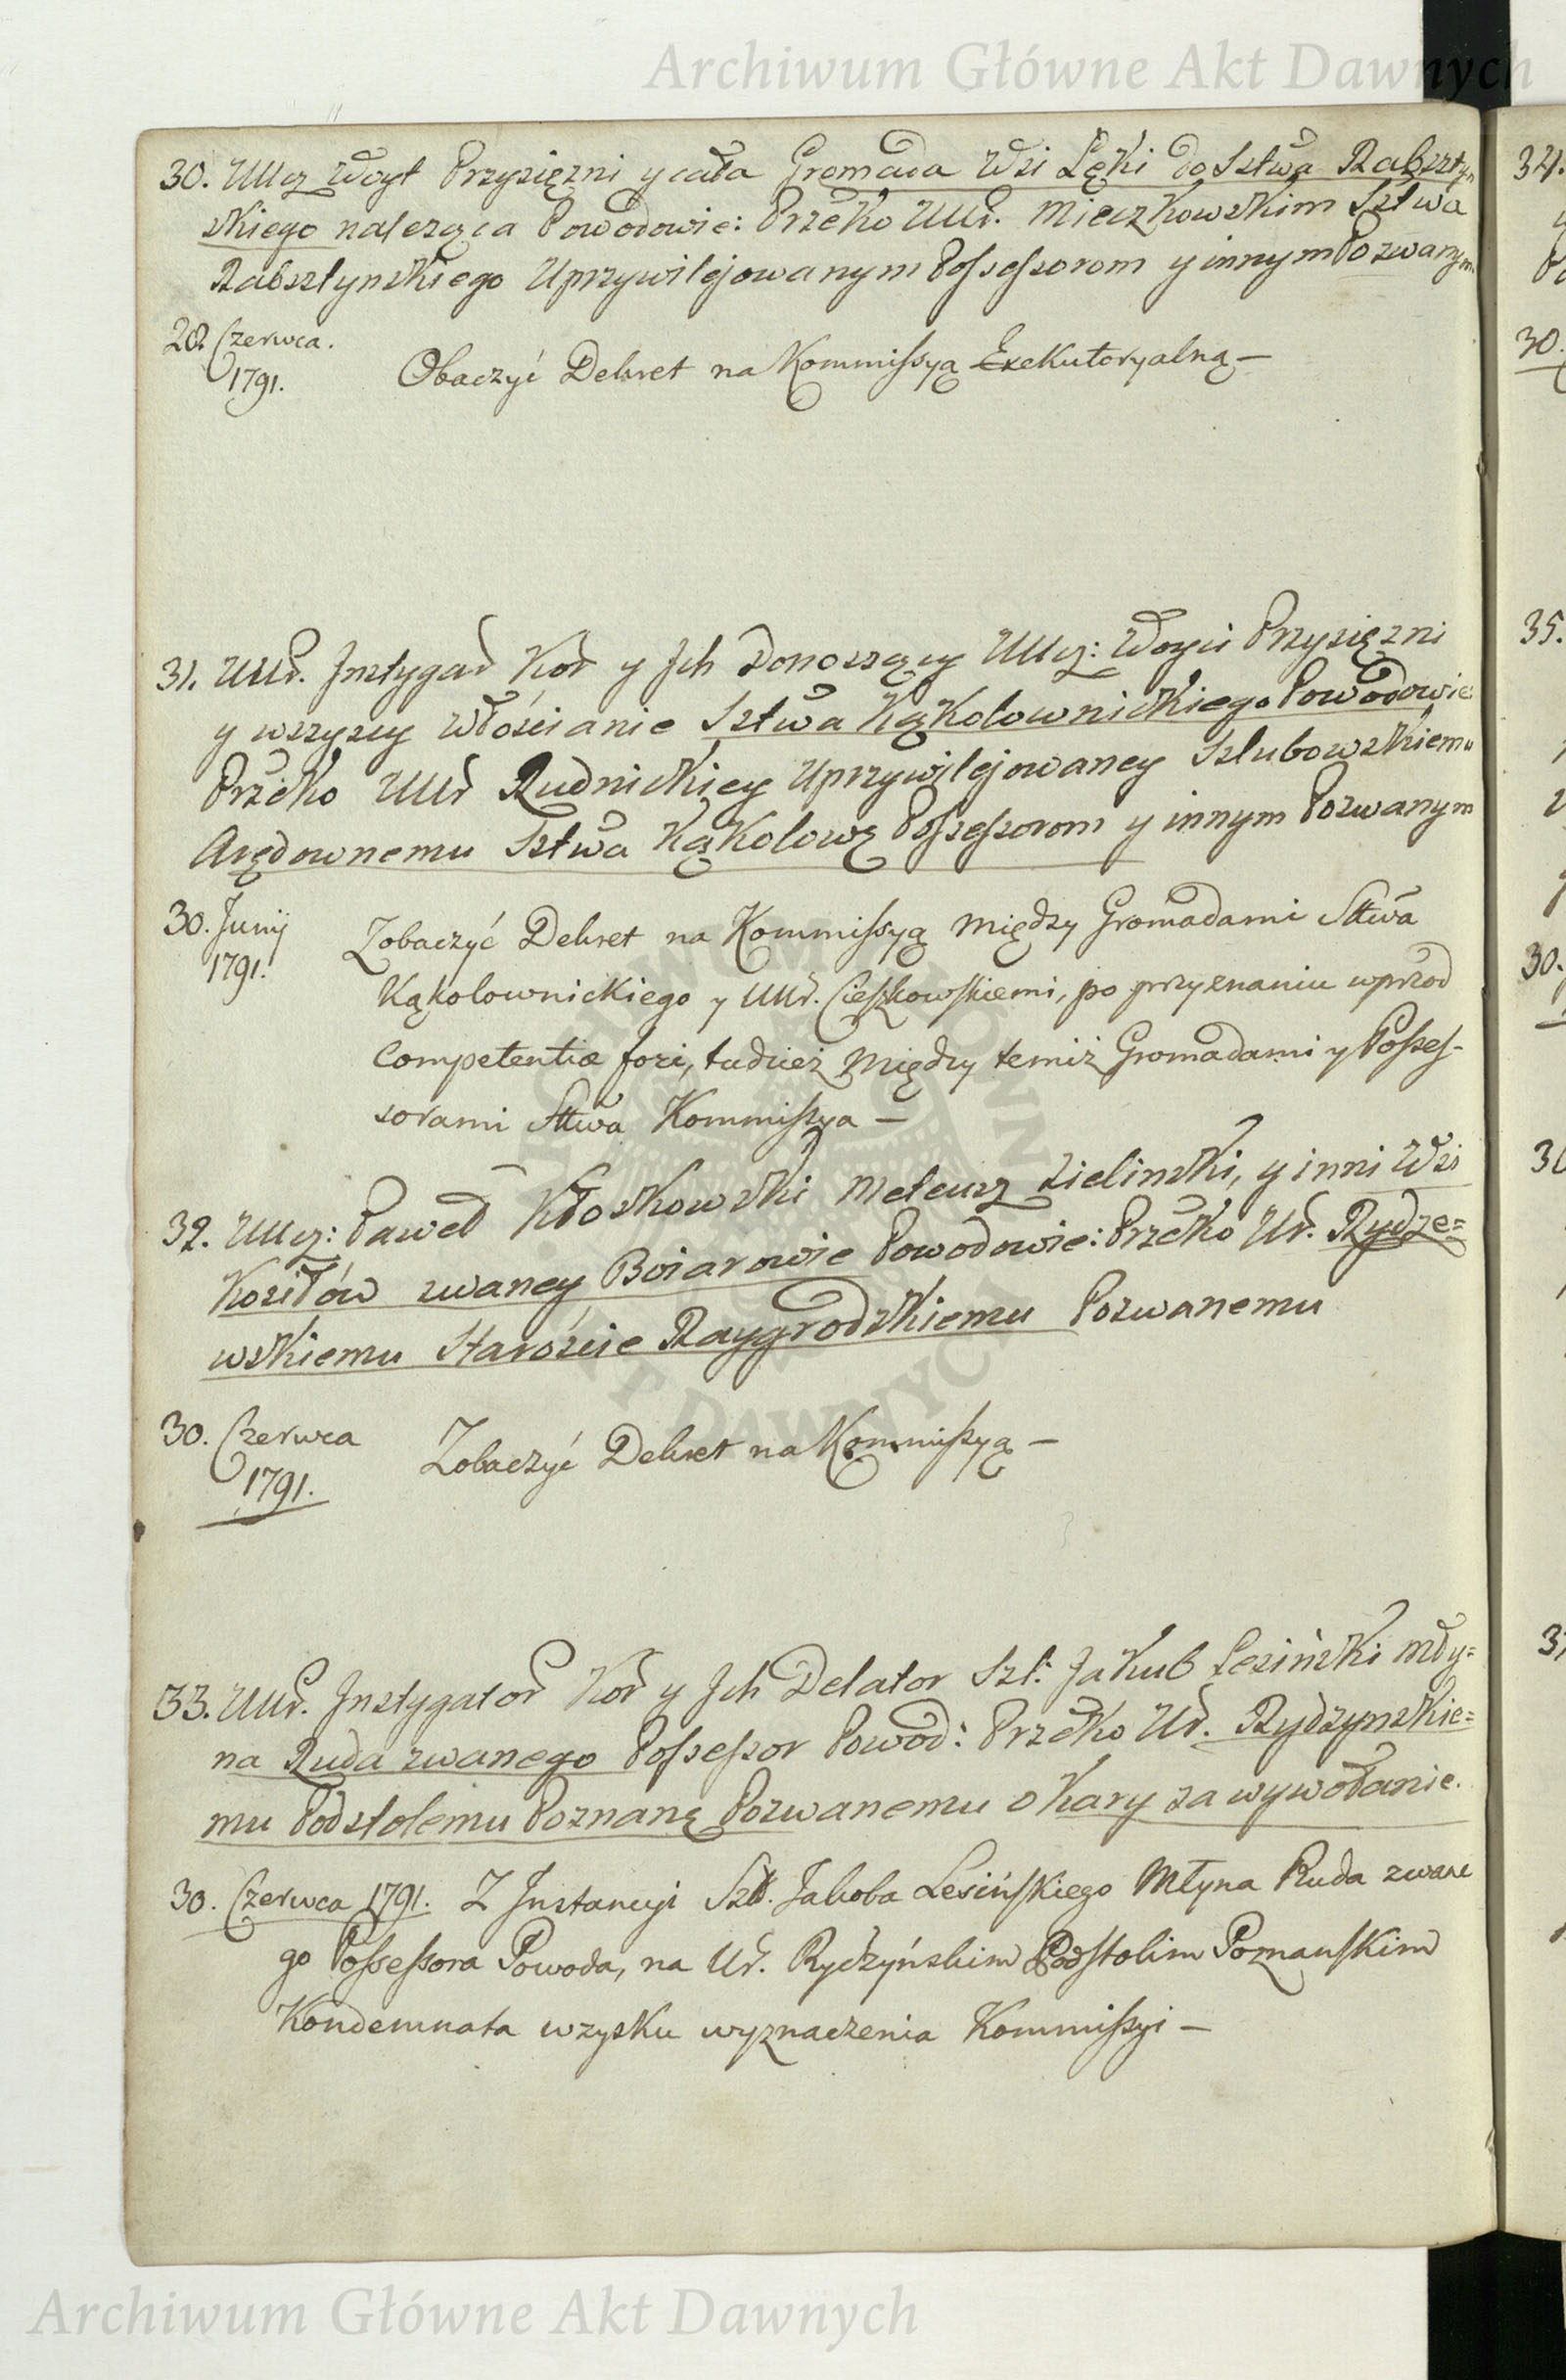 Archiwum Główne Akt Dawnych
30. UUcz Woyt Przysięzni y cała Gromada Wsi Lęki do Sztwa Rabsztyn
skiego naleząca Powodowie: Przeko UUr. Mieczkowskim Sztwa
Rabsztynskiego Uprzywilejowanym Possessorom y innym Pozwanym
20. Czerwca.
1791.
Obaczyć Dekret na Kommissyą Exekutoryalną —
31. UUr. Instygat Kor y Ich Donoszący UUcz: Woyci Przysięzni
y wszyscy włościanie Sztwa Kąkolownickiego Powodowie
Przeko UUr Rudnickiey Uprzywilejowaney Szlubowskiemu
Arędownemu Sztwa Kąkolowę Possessorom y innym Pozwanym
30. Junij
1791.
Zobaczyć Dekret na Kommissyą między Gromadami Sttwa
Kąkolownickiego y UUr. Cieszkowskiemi, po przyznaniu wprzod
Competentiæ fori, tudzież między temiż Gromadami y Posses-
sorami Sttwa Kommissya —
32. UUcz: Paweł Kłoskowski Meteusz Zielinski, y inni Wsi
Koziłów zwaney Boiarowie Powodowie: Przeko Ur. Rydze=
wskiemu Staroście Raygrodzkiemu Pozwanemu
30. Czerwca
1791.
Zobaczyć Dekret na Kommissyą —
33. UUr. Instygator Kor y Ich Delator Szl: Jakub Lesiński Mły=
na Ruda zwanego Possessor Powod: Przeko Ur. Rydzynskie=
mu Podstolemu Poznanę Pozwanemu o kary za wywołanie.
30. Czerwca 1791. Z Instancyi Szl. Jakoba Lesińskiego Młyna Ruda zwane
go Possessora Powoda, na Ur. Rydzyńskim Podstolim Poznanskim
Kondemnata wzysku wyznaczenia Kommissyi —
34.
30.
35.
30.
Archiwum Główne Akt Dawnych